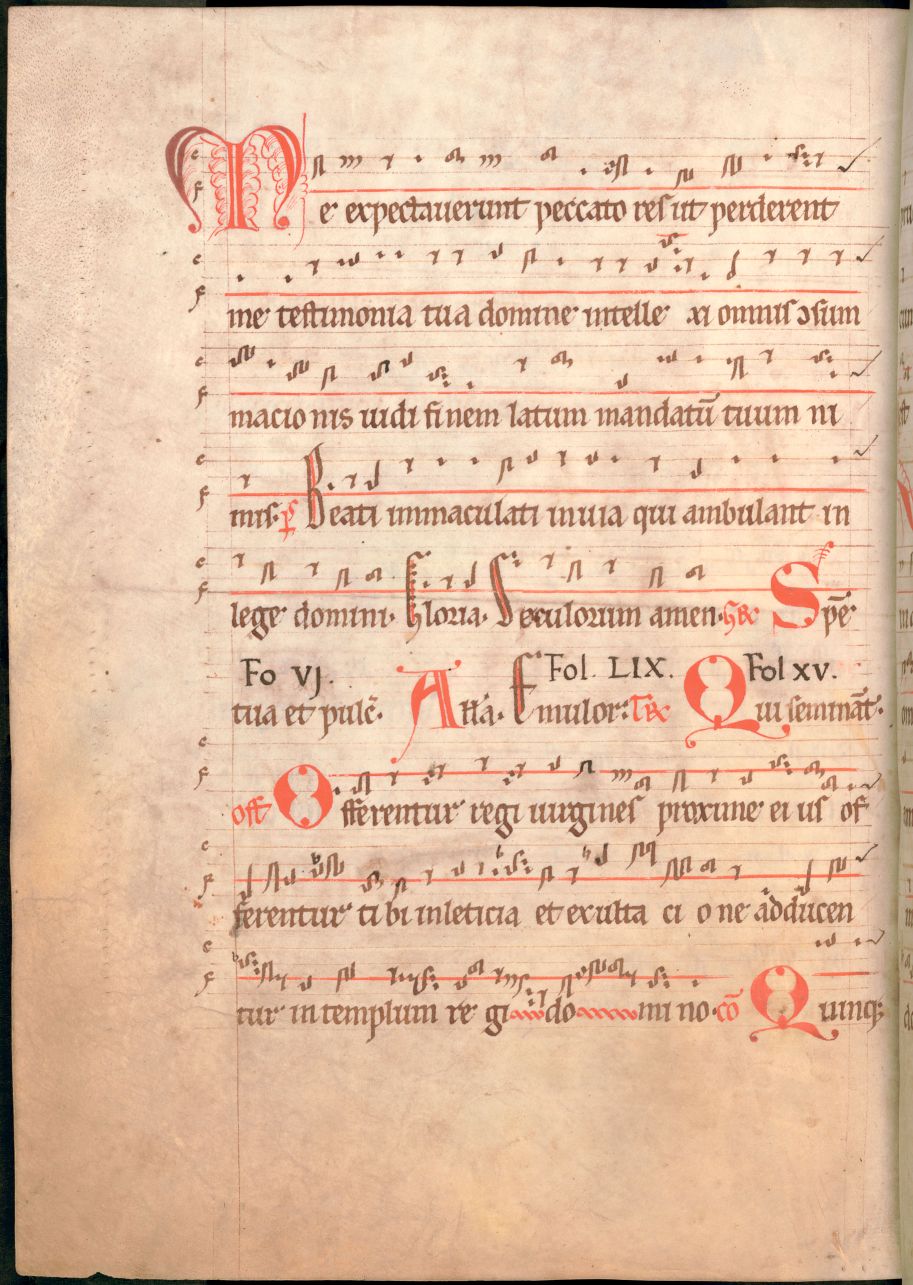 Me expectauerunt peccato res ut perderent
me testimonia tua domine intelle xi omnis ↄsum
macio nis uidi fi nem latum mandatū tuum ni
mis. p̄s Beati inmaculati inuia qui ambulant in
lege domini. Gloria. Seculorum amen. Gr̄ Spē
Fo VJ. Fol. LIX. Fol xv.
tua et pulc̄. All̄a. Emulor. Tr̄ Qui semināt.
off Offerentur regi uirgines proxime ei us of
ferentur ti bi inleticia et exulta ci o ne adducen
tur in templum re gi do mi no. cō Quinq;